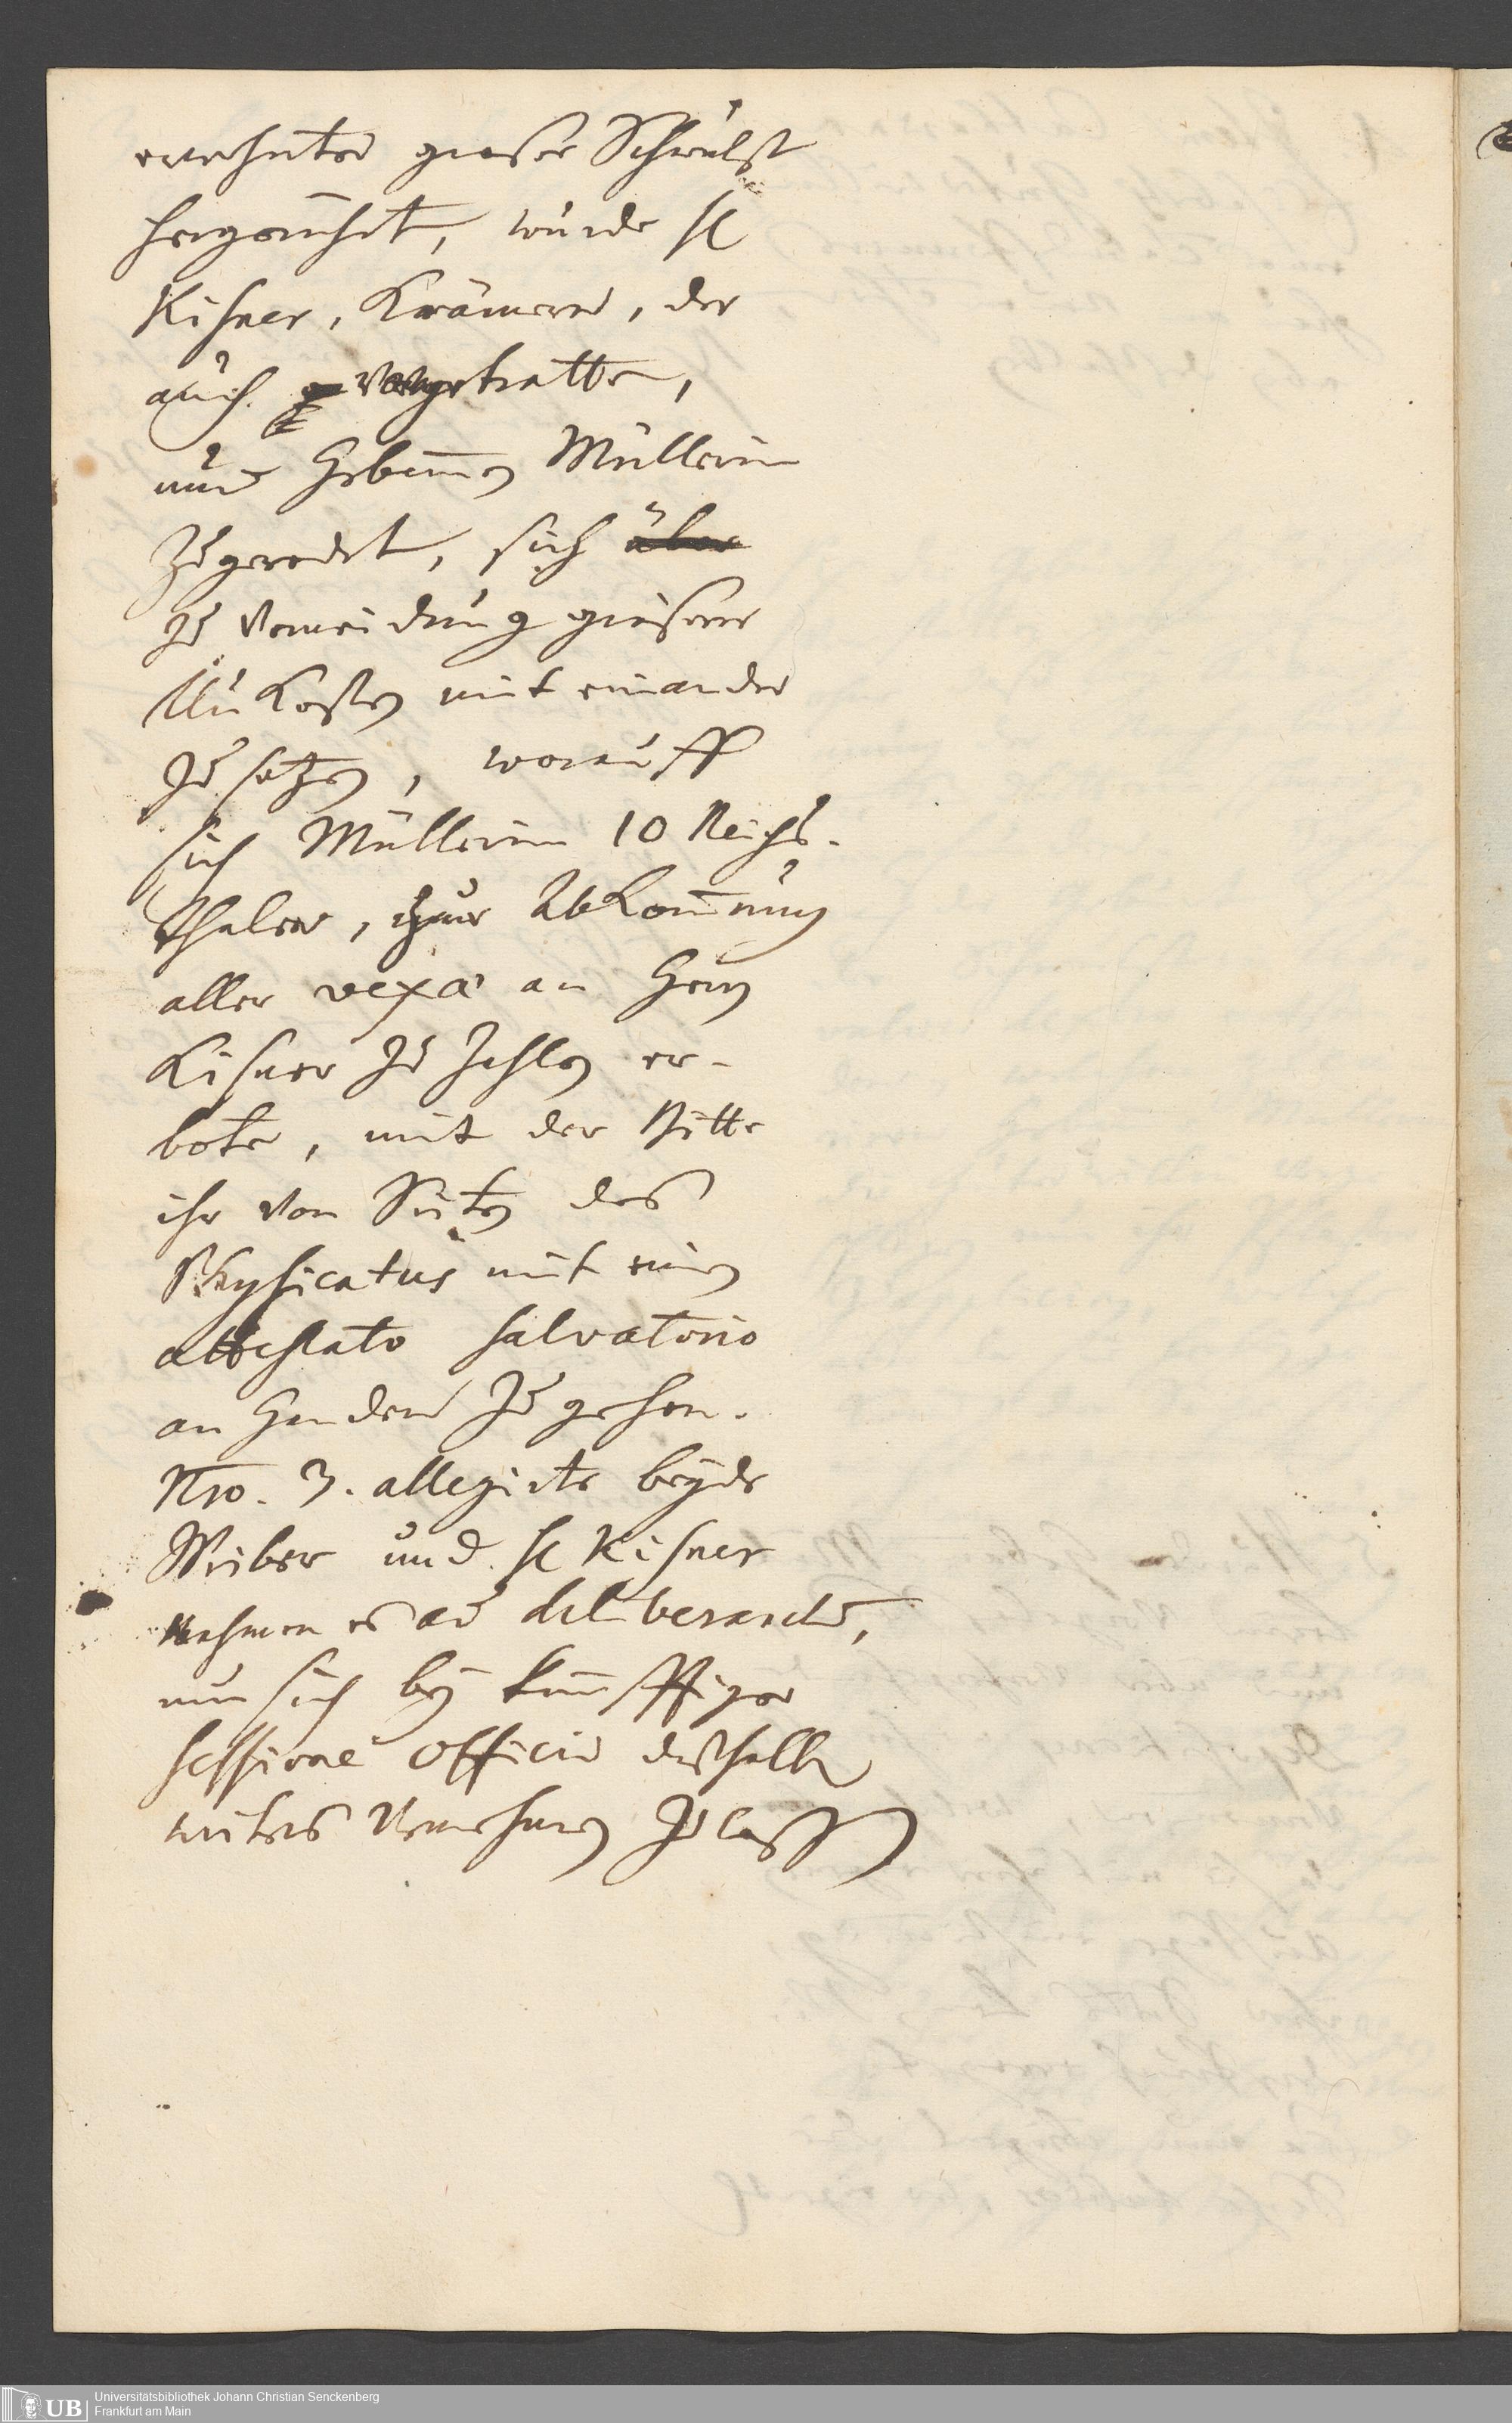 erwehnter großer Schwulst
hergerührt, wurde H
Kisner, Krämern, der
auch vorgetretten,
und Hebamen Müllerin
zugeredet, sich über
zu Vermeidung größerer
Unkosten mit einander
zu setzen, worauff
sich Müllerin 10 Reichs-
thaler, zur Abkomung
aller vexa an Herrn
Kisner zu zahlen er-
boten, mit der Bitte
ihr von Seiten des
Physicatus mit einem
attestato salvatorio
an Handen zu gehen.
Nro. 3. allegirte beyde
Weiber und H Kisner
nahmen es ad deliberandū,
um sich bey künfftiger
sessione officii deshalben
weiters vernehmen zu lassen
Universitätsbibliothek Johann Christian Senckenberg
Frankfurt am Main
UB